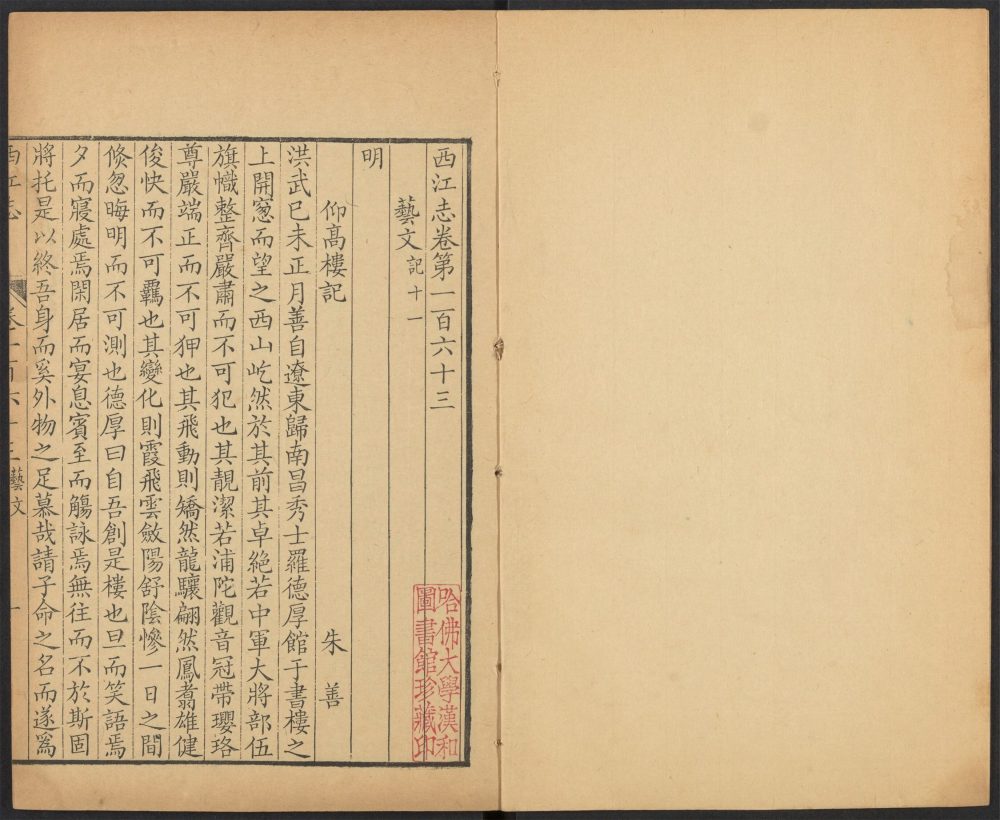 西江志卷第一百六十三
藝文記十一
明
仰髙樓記 朱善
洪武已未正月善自遼東歸南昌秀士羅德厚館于書樓之
上開窻而望之西山屹然於其前其卓絕若中軍大將部伍
旗幟整齊嚴肅而不可犯也其靚潔若浦陀觀音冠帶瓔珞
尊嚴端正而不可狎也其飛動則矯然龍驤翩然鳳翥雄健
俊快而不可羈也其變化則霞飛雲斂陽舒陰慘一日之間
倐忽晦明而不可測也德厚曰自吾創是樓也旦而笑語焉
夕而寢處焉閑居而宴息賓至而觴詠焉無往而不於斯固
將托是以終吾身而奚外物之足慕哉請子命之名而遂爲
西江志 卷一百六十三藝文 一
哈佛大學漢和
圖書館珍藏印